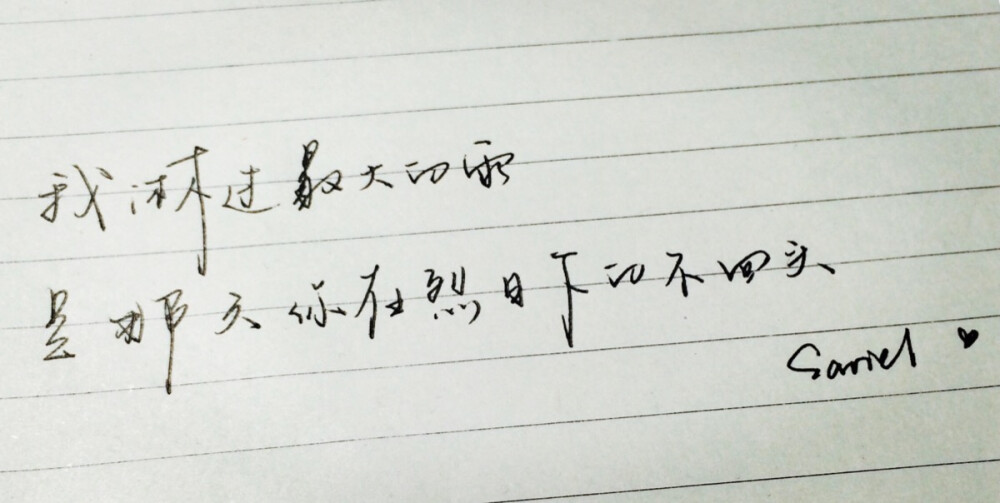 我淋过最大的雨
是那天你在烈日下的不回头
Sariel